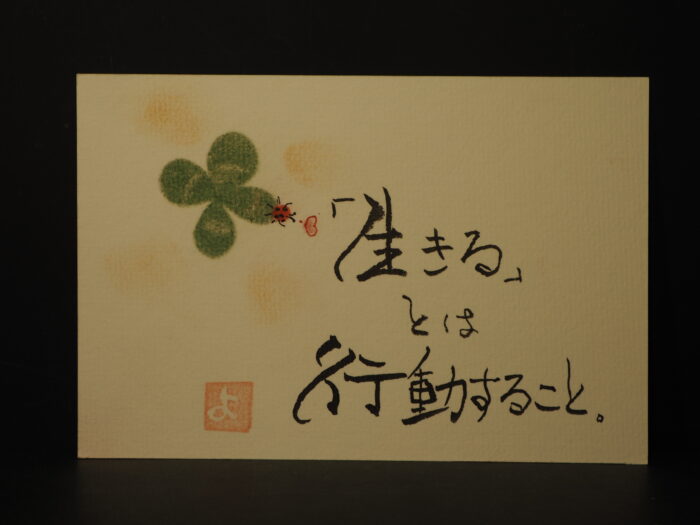 「生きる」
とは
行動すること。
よ